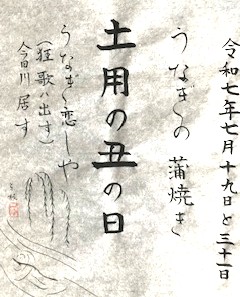 令和七年七月十九日と三十一日
うなぎの 蒲焼き
土用の丑の日
うなぎ恋しや
(狂歌ハ出す)
今日川居す